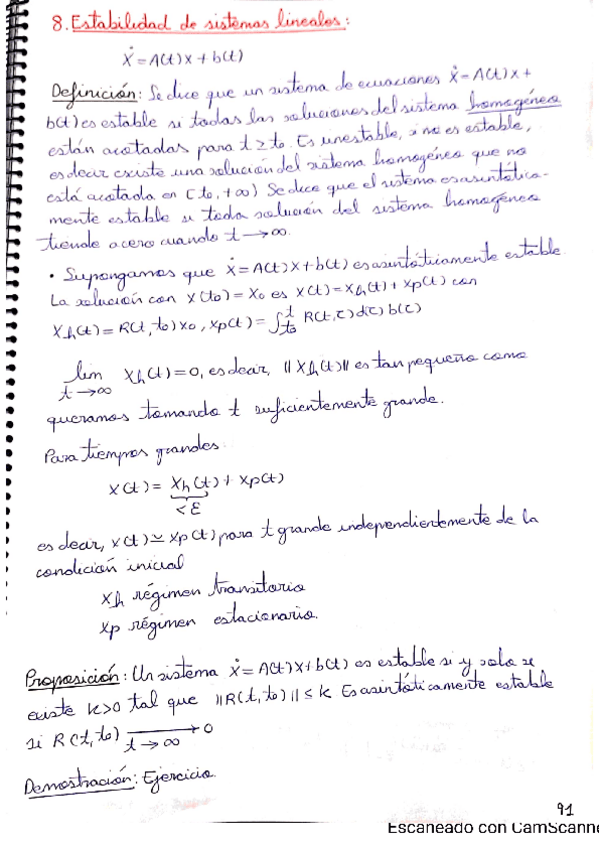 8. Estabilidad de sistemas lineales:
ẋ = A(t)x + b(t)
Definición: Se dice que un sistema de ecuaciones ẋ = A(t)x +
b(t) es estable si todas las soluciones del sistema homogéneo
están acotadas para t ≥ t₀. Es inestable, si no es estable,
es decir existe una solución del sistema homogéneo que no
está acotada en [t₀, +∞) Se dice que el sistema es asintótica-
mente estable si toda solución del sistema homogéneo
tiende a cero cuando t → ∞.
• Supongamos que ẋ = A(t)x + b(t) es asintóticamente estable.
La solución con x(t₀) = x₀ es x(t) = xh(t) + xp(t) con
xh(t) = R(t, t₀)x₀, xp(t) = ∫_{t₀}^{t} R(t, τ) d(τ) b(τ)
lim xh(t) = 0, es decir, ||xh(t)|| es tan pequeño como
t → ∞
queramos tomando t suficientemente grande.
Para tiempos grandes:
x(t) = xh(t) + xp(t)
< ε
es decir, x(t) ≃ xp(t) para t grande independientemente de la
condición inicial
xh régimen transitorio
xp régimen estacionario.
Proposición: Un sistema ẋ = A(t)x + b(t) es estable si y solo si
existe k>0 tal que ||R(t, t₀)|| ≤ k Es asintóticamente estable
si R(t, t₀) → 0
t → ∞
Demostración: Ejercicio.
91
Escaneado con CamScanne